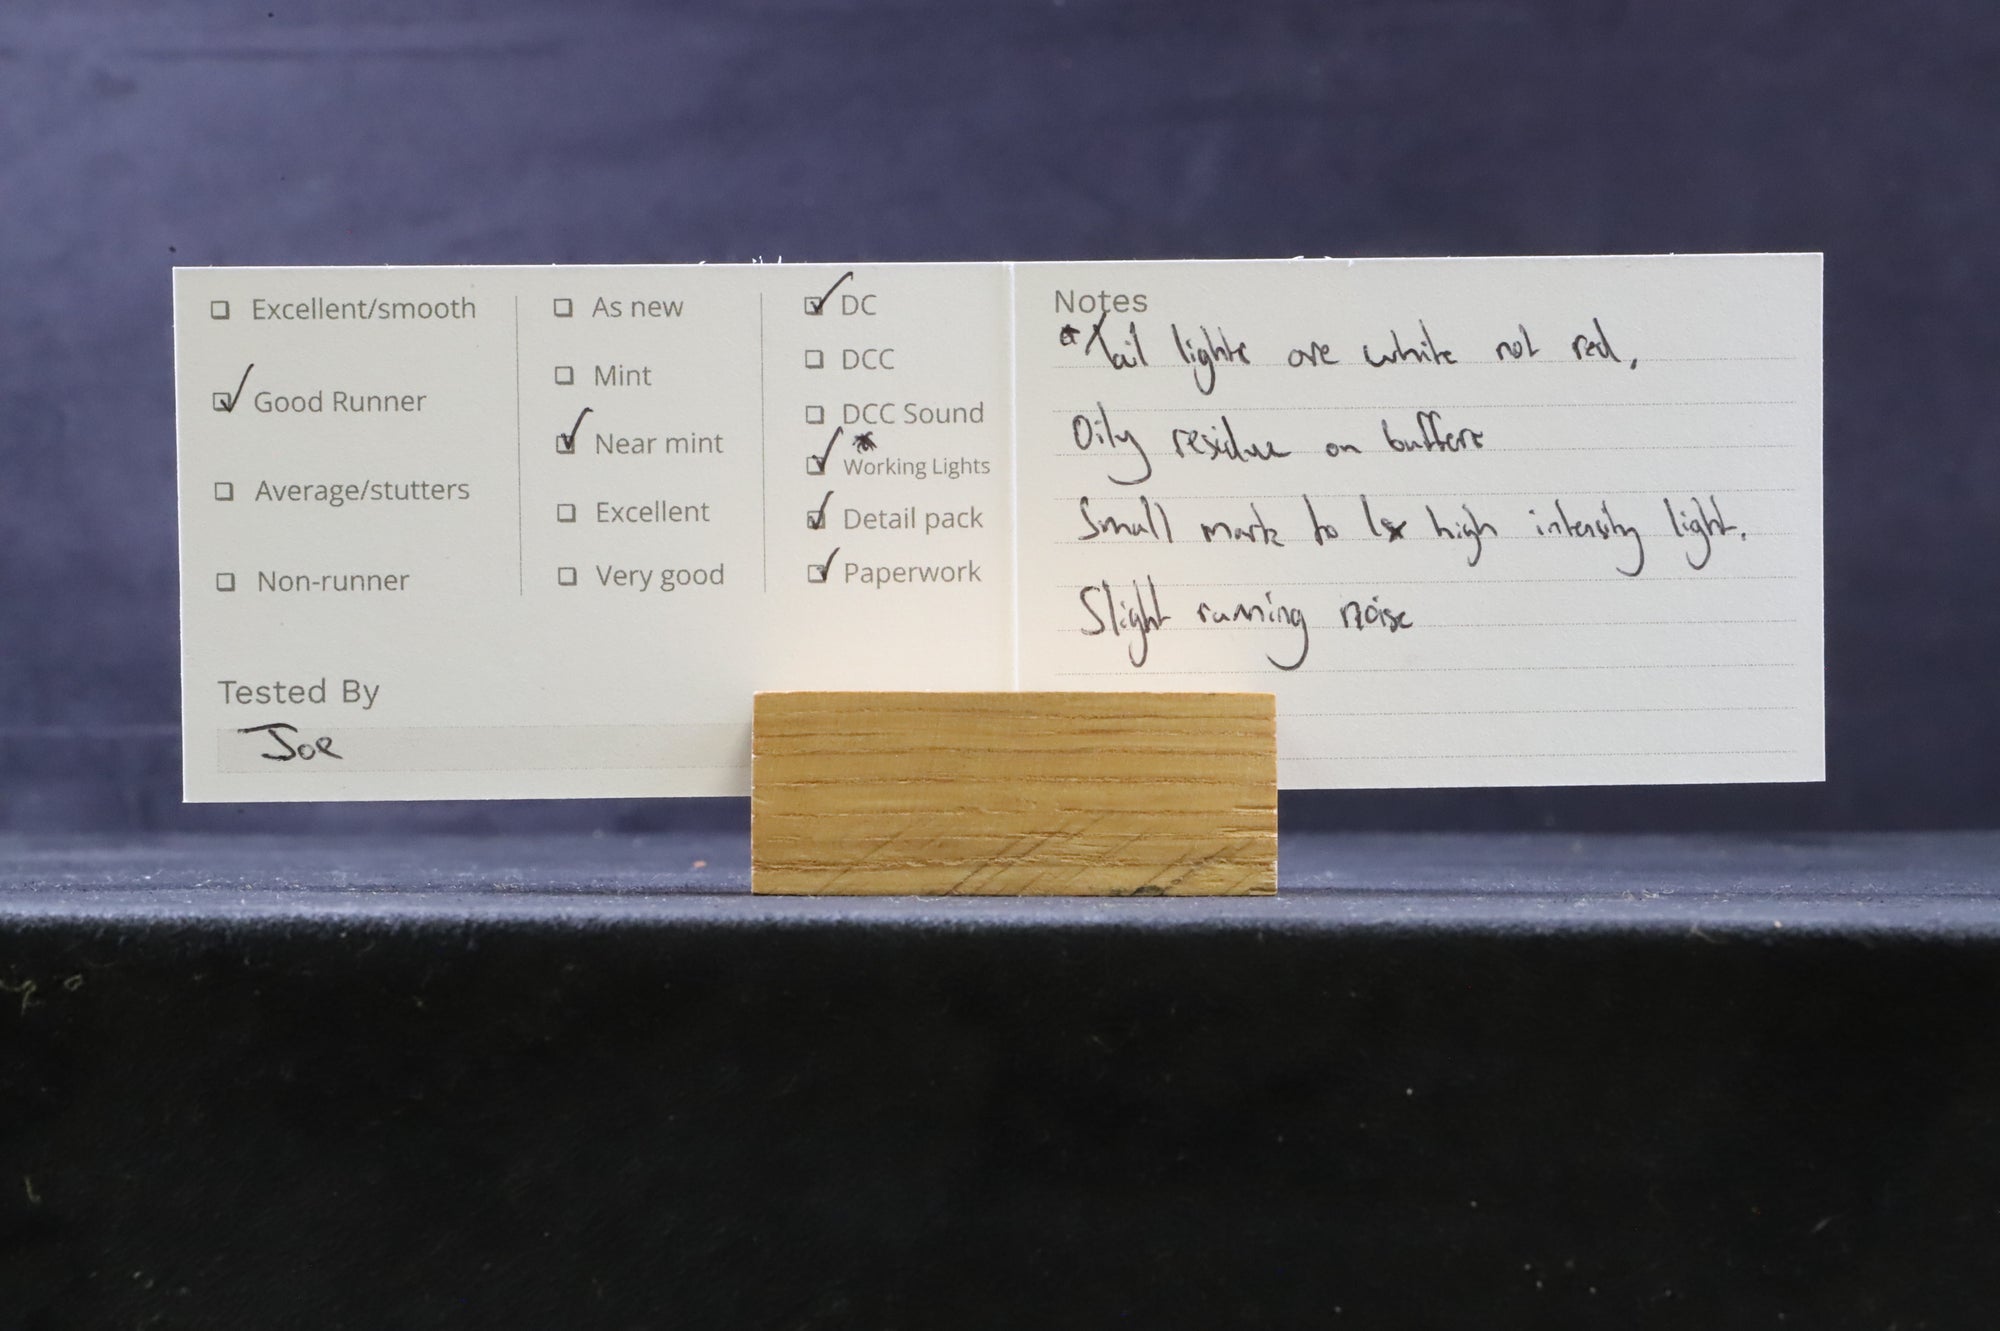 Excellent/smooth
Good Runner
Average/stutters
Non-runner
As new
Mint
Near mint
Excellent
Very good
DC
DCC
DCC Sound
*
Working Lights
Detail pack
Paperwork
Tested By
Joe
Notes
*Tail lights are white not red,
Oily residue on buffers
Small mark to 1x high intensity light.
Slight running noise